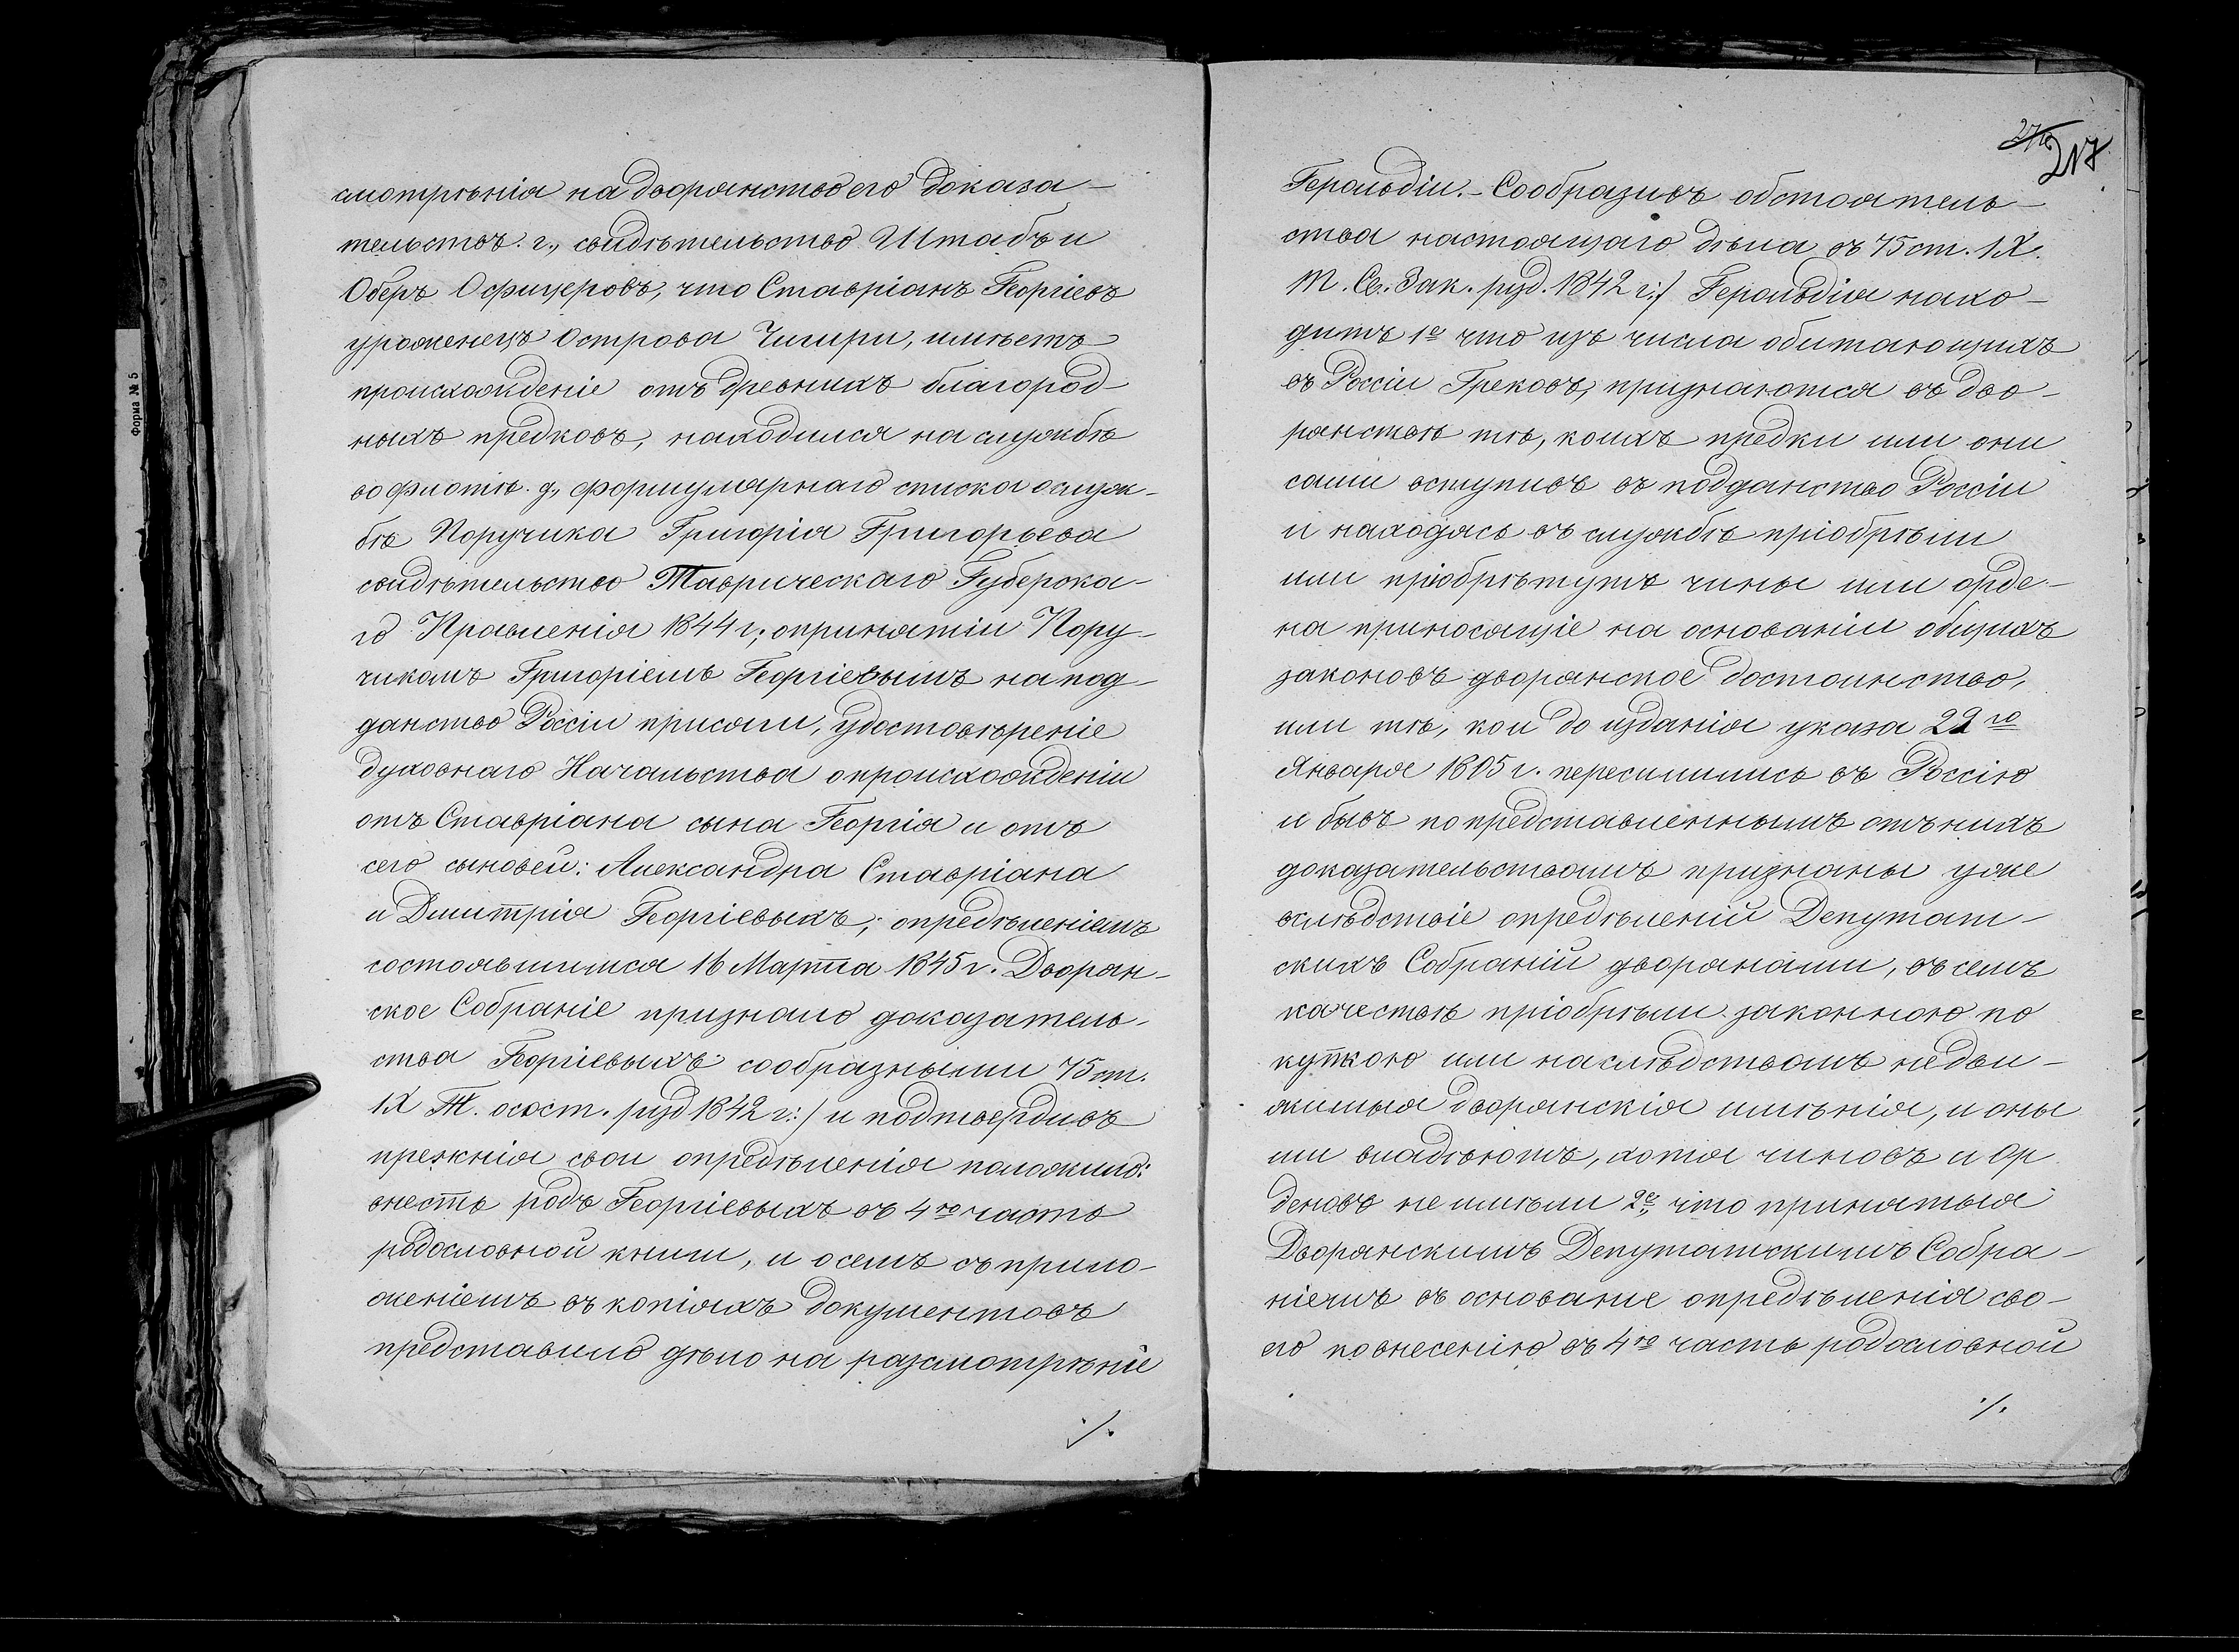 смотрѣнія на дворянство его доказа-
тельствъ. г., свидѣтельство Штабъ и
Оберъ Офицеровъ, что Ставріанъ Георгіевъ
уроженецъ Острова Чигири, имѣетъ
происхожденіе отъ древнихъ благород-
ныхъ предковъ, находился на службѣ
во флотѣ. д., формулярнаго списка о служ-
бѣ Поручика Григорія Григорьева
свидѣтельство Таврическаго Губернска-
го Правленія 1844 г.; о принятіи Пору-
чикомъ Григоріемъ Георгіевымъ на под-
данство Россіи присяги, удостовѣреніе
духовнаго Начальства о происхожденіи
отъ Ставріана сына Георгія и отъ
сего сыновей: Александра Ставріана
и Дмитрія Георгіевыхъ; опредѣленіемъ
состоявшимся 16 Марта 1845 г. Дворян-
ское Собраніе признало доказатель-
ства Георгіевыхъ сообразными 75 ст.
IX Т. о сост. /изд 1842 г:/ и подтвердивъ
прежнія свои опредѣленія положило:
внесть родъ Георгіевыхъ въ 4ю часть
родословной книги, и о семъ съ прило-
женіемъ въ копіяхъ документовъ
представило дѣло на разсмотрѣніе
./.
Форма № 5
217
Герольдіи. - Сообразивъ обстоятель-
ства настоящаго дѣла съ 75 ст. IX.
Т. Св. Зак. /изд. 1842 г:/ Герольдія нахо-
дитъ 1е что изъ числа обитающихъ
въ Россіи Грековъ, признаются въ дво-
рянствѣ тѣ, коихъ предки или они
сами вступивъ въ подданство Россіи
и находясь въ службѣ пріобрѣли
или пріобрѣтутъ чины или орде-
на приносящіе на основаніи общихъ
законовъ дворянское достоинство,
или тѣ, кои до изданія указа 22го
Января 1805 г. переселились въ Россію
и бывъ по представленнымъ отъ нихъ
доказательствамъ признаны уже
вслѣдствіе опредѣленій Депутат-
скихъ Собраній дворянами, въ семъ
качествѣ пріобрѣли законною по
купкою или наслѣдствомъ недви-
жимыя дворянскія имѣнія, и оны
ми владѣютъ, хотя чиновъ и Ор
деновъ не имѣли 2е, что принятыя
Дворянскимъ Депутатскимъ Собра-
ніемъ въ основаніе опредѣленія сво-
его по внесенію въ 4ю часть родословной
./.